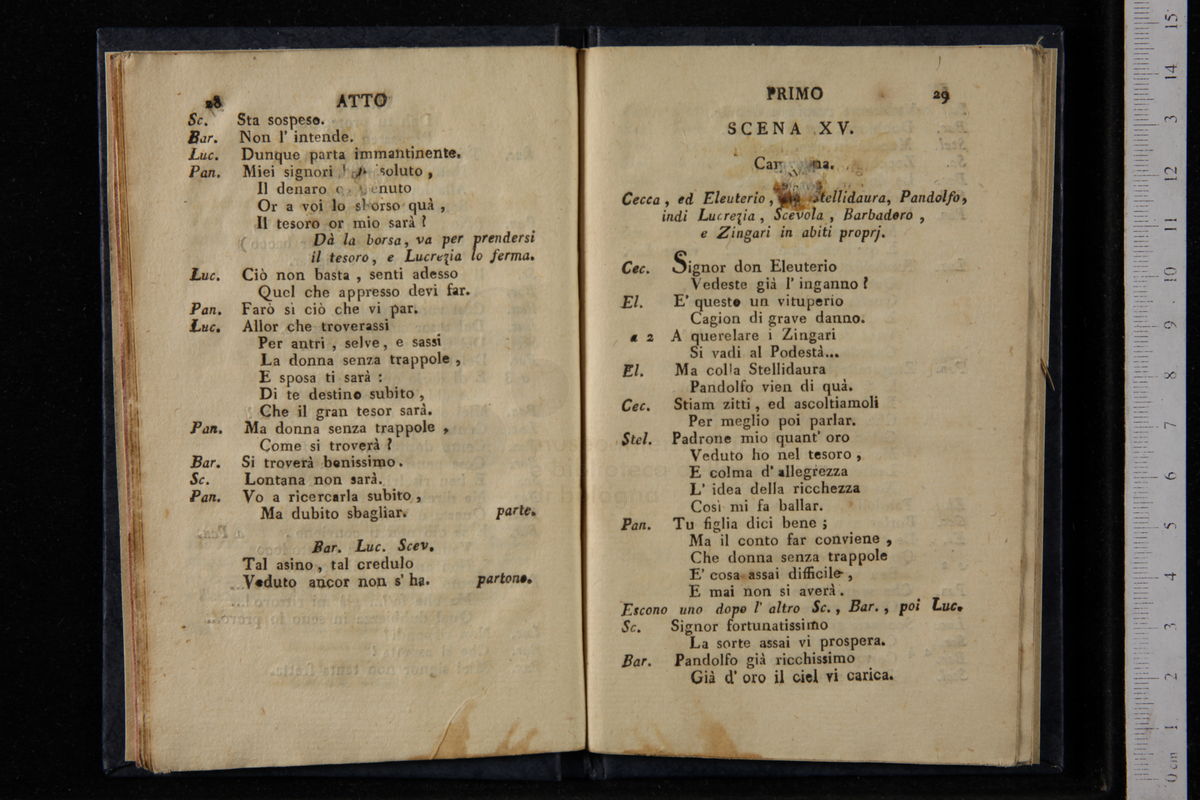 28 ATTO
Sc. Sta sospeso.
Bar. Non l' intende.
Luc. Dunque parta immantinente.
Pan. Miei signori soluto,
Il denaro
Or a voi lo sborso quà,
Il tesoro or mio sarà?
Dà la borsa, va per prendersi
il tesoro, e Lucrezia lo ferma.
Luc. Ciò non basta, senti adesso
Quel che appresso devi far.
Pan. Farò sì ciò che vi par.
Luc. Allor che troverassi
Per antri, selve, e sassi
La donna senza trappole,
E sposa ti sarà:
Di te destino subito,
Che il gran tesor sarà.
Pan. Ma donna senza trappole,
Come si troverà?
Bar. Si troverà benissimo.
Sc. Lontana non sarà.
Pan. Vo a ricercarla subito,
Ma dubito sbagliar. parte.
Bar. Luc. Scev.
Tal asino, tal credulo
Veduto ancor non s' ha. partono.
PRIMO 29
SCENA XV.
Cecca, ed Eleuterio, Stellidaura, Pandolfo,
indi Lucrezia, Scevola, Barbadoro,
e Zingari in abiti proprj.
Cec. Signor don Eleuterio
Vedeste già l' inganno?
El. E' questo un vituperio
Cagion di grave danno.
a 2 A querelare i Zingari
Si vadi al Podestà...
El. Ma colla Stellidaura
Pandolfo vien di quà.
Cec. Stiam zitti, ed ascoltiamoli
Per meglio poi parlar.
Stel. Padrone mio quant' oro
Veduto ho nel tesoro,
E colma d' allegrezza
L' idea della ricchezza
Così mi fa ballar.
Pan. Tu figlia dici bene;
Ma il conto far conviene,
Che donna senza trappole
E' cosa assai difficile,
E mai non si averà.
Escono uno dopo l' altro Sc., Bar., poi Luc.
Sc. Signor fortunatissimo
La sorte assai vi prospera.
Bar. Pandolfo già ricchissimo
Già d' oro il ciel vi carica.
0 cm 1 2 3 4 5 6 7 8 9 10 11 12 13 14 15